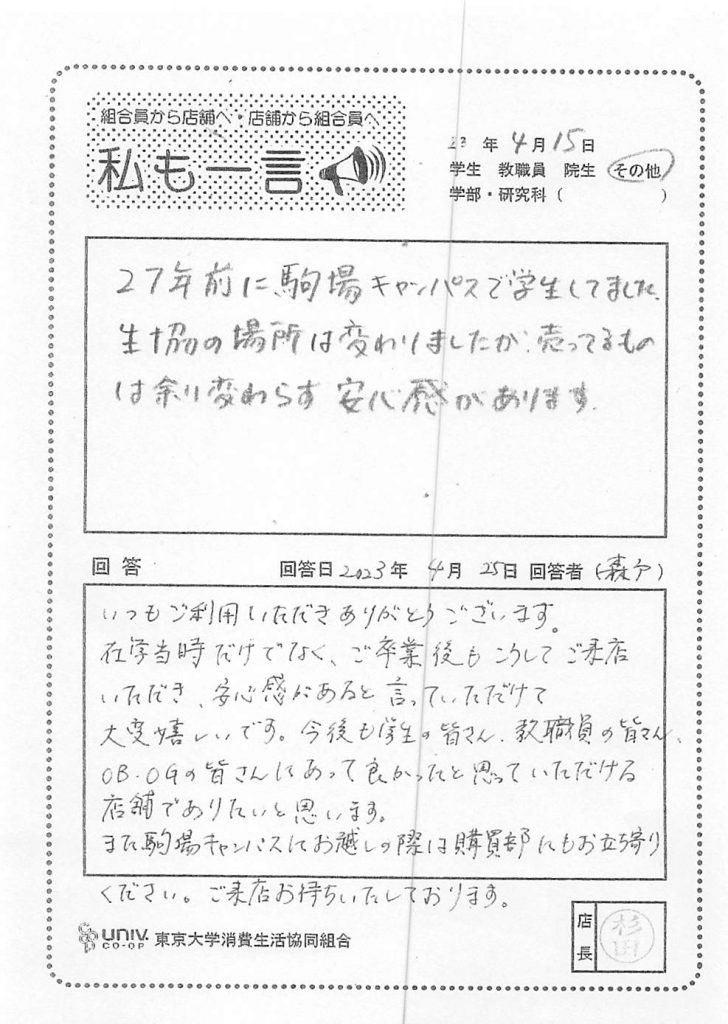 組合員から店舗へ・店舗から組合員へ
私も一言
23 年 4月 15日
学生 教職員 院生 その他
学部・研究科 ( )
27年前に駒場キャンパスで学生してました。
生協の場所は変わりましたが、売ってるもの
は余り変わらず 安心感があります。
回答 回答日 2023年 4月 25日 回答者 (森下)
いつもご利用いただきありがとうございます。
在学当時だけでなく、ご卒業後もこうしてご来店
いただき、安心感があると言っていただけて
大変嬉しいです。今後も学生の皆さん、教職員の皆さん、
OB・OGの皆さんにあって良かったと思っていただける
店舗でありたいと思います。
また駒場キャンパスにお越しの際は購買部にもお立ち寄り
ください。ご来店お待ちいたしております。
UNIV. CO-OP 東京大学消費生活協同組合
店長 杉田